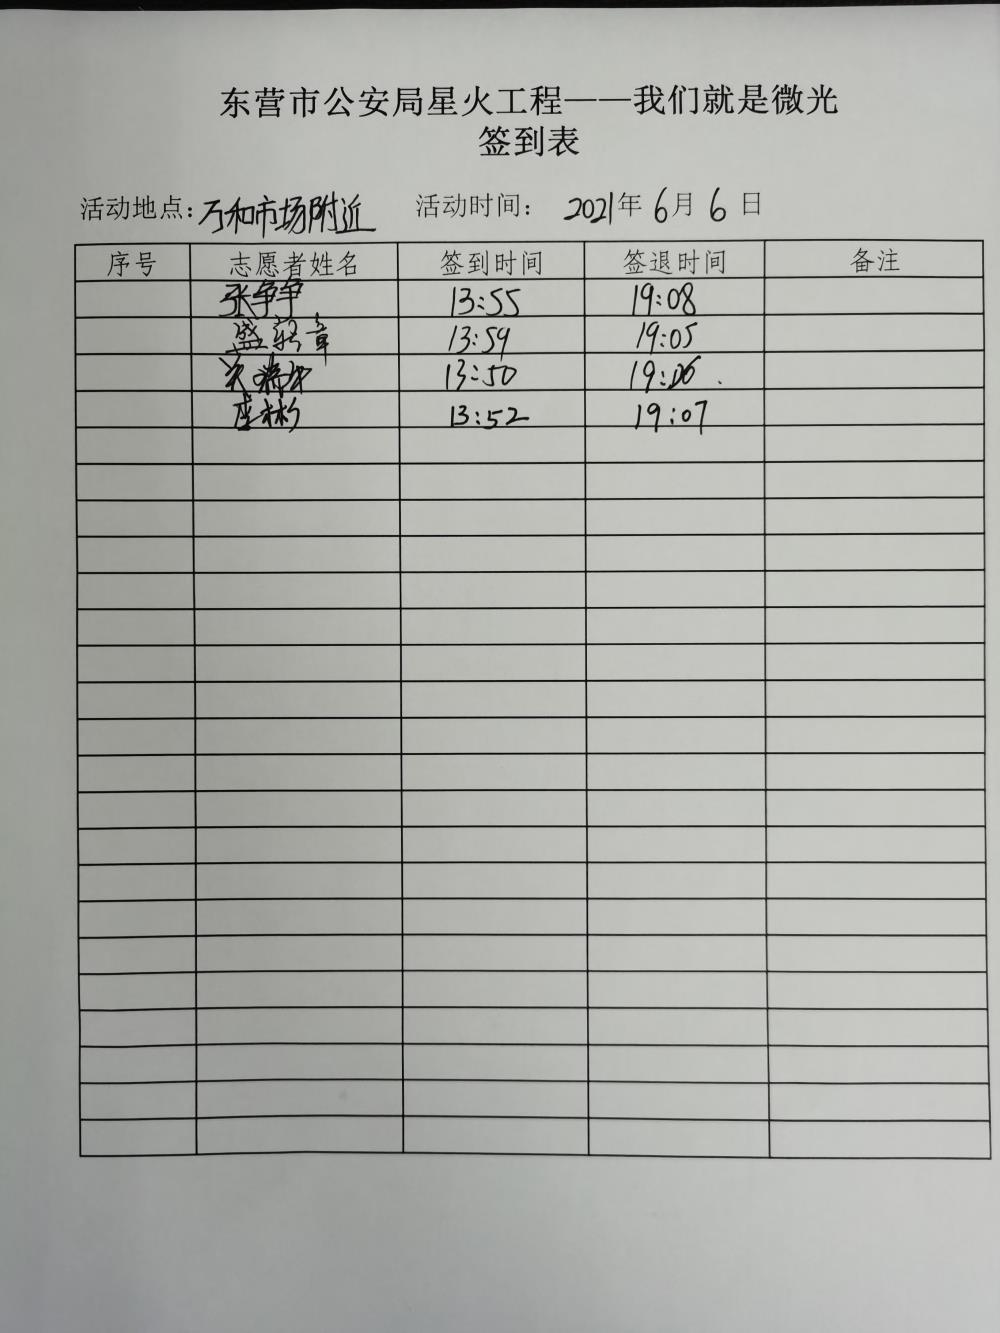 东营市公安局星火工程——我们就是微光
签到表
活动地点：万和市场附近 活动时间： 2021年6月6日
序号 志愿者姓名 签到时间 签退时间 备注
张争争 13:55 19:08
盛 章 13:59 19:05
13:50 19:06
彬 13:52 19:07